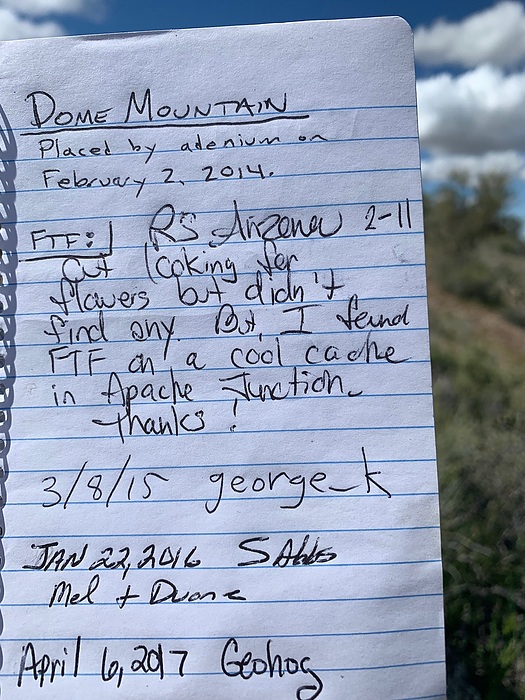 DOME MOUNTAIN
Placed by adenium on
February 2, 2014.
FTF: RS Arizona 2-11
Out looking for
flowers but didn't
find any. But, I found
FTF on a cool cache
in Apache Junction.
thanks!
3/8/15 george_k
JAN 22, 2016
Mel + Duane
April 6, 2017 Geohog